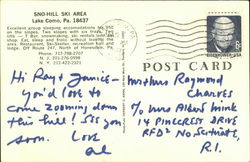 SNO-HILL SKI AREA
Lake Como, Pa. 18437
Excellent group sleeping accomodations
on the slopes. Two slopes with six trails. Two
Shop. Eat, sleep and frolic without leaving the
area. Restaurant, Ski-Skeller, recreation hall and
lodge. Off Route 247, North of Honesdale, Pa.
Phone: 717-798-2707
N. J. 201-276-0998
N. Y. 212-422-2321
POST CARD
Hi Ray & Janice—
You'd love to
come zooming down
this hill! See you
soon. Love
Al
Mr + Mrs Raymond
Charves
c/o Mrs Albert Mink
14 Pinecrest Drive
RFD2 No Scituate,
R.I.